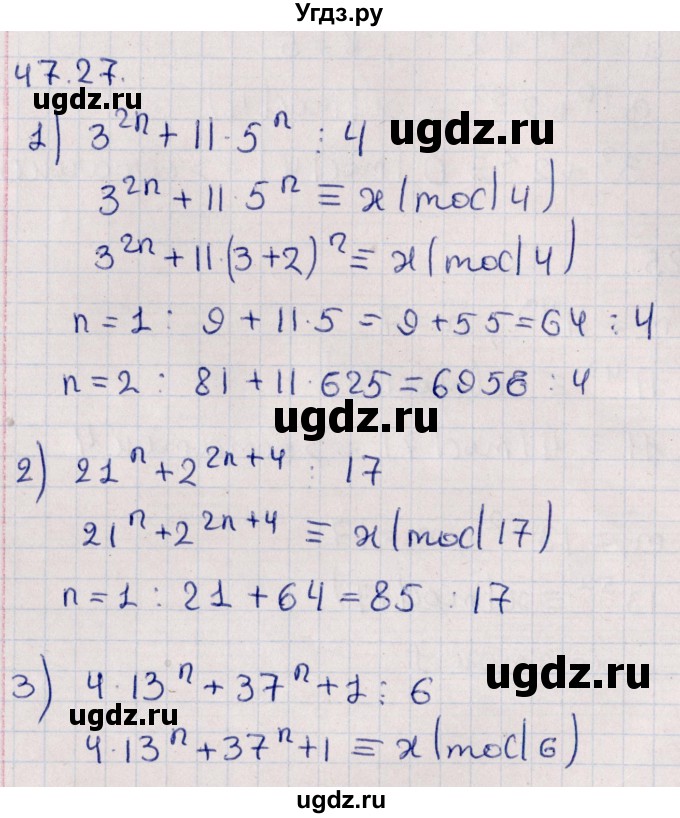 Угдз.ру
47.27.
ugdz.ru
1) 3^{2n} + 11 · 5^n ⋮ 4 ugdz.ru
3^{2n} + 11 · 5^n ≡ x (mod 4)
3^{2n} + 11 · (3+2)^n ≡ x (mod 4)
n = 1 : 9 + 11 · 5 = 9 + 55 = 64 ⋮ 4
n = 2 : 81 + 11 · 625 = 6956 : 4
ugdz.ru
2) 21^n + 2^{2n+4} ⋮ 17
21^n + 2^{2n+4} ≡ x (mod 17)
n = 1 : 21 + 64 = 85 ⋮ 17
ugdz.ru
3) 4 · 13^n + 37^n + 1 ⋮ 6
ugdz.ru
4 · 13^n + 37^n + 1 ≡ x (mod 6)
ugdz.ru